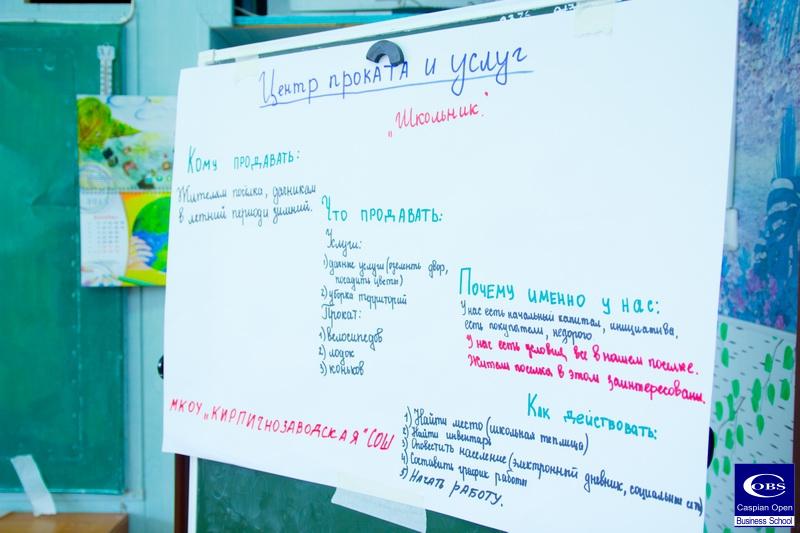 Центр проката и услуг
„Школьник".
Кому продавать:
Жителям посёлка, дачникам
в летний период и зимний.
Что продавать:
Услуги:
1) дачные услуги (озеленить двор,
посадить цветы)
2) уборка территорий
Прокат:
1) велосипедов
2) лодок
3) коньков
Почему именно у нас:
У нас есть начальный капитал, инициатива,
есть покупатели, недорого
У нас есть условия, все в нашем поселке.
Жители поселка в этом заинтересованы.
Как действовать:
1) Найти место (школьная теплица)
2) Найти инвентарь
3) Оповестить население (электронный дневник, социальные сети)
4) Составить график работы
5) Начать работу.
МКОУ „Кирпичнозаводская" СОШ
COBS
Caspian Open
Business School